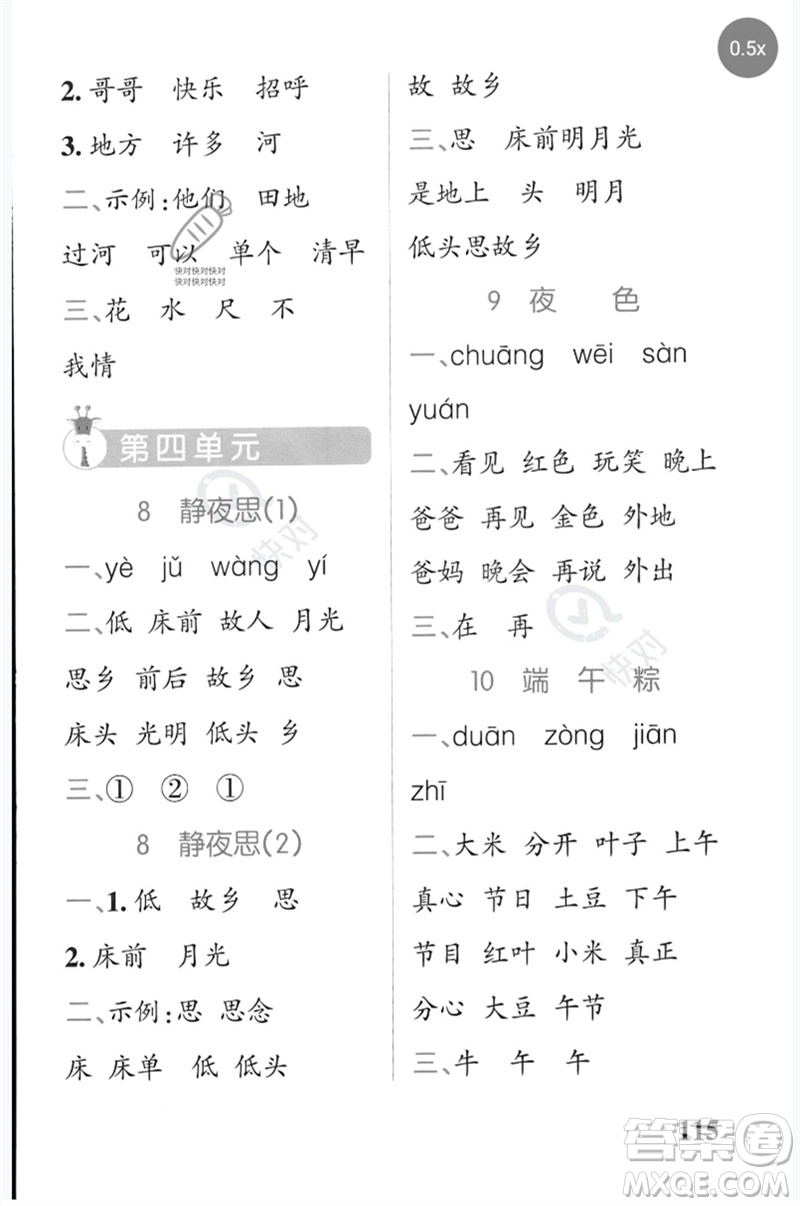 0.5x
2. 哥哥 快乐 招呼
3. 地方 许多 河
二、示例：他们 田地
过河 可以 单个 清早
快对快对快对
快对快对快对
三、花 水 尺 不
我情
第四单元
8 静夜思(1)
一、yè jǔ wàng yí
二、低 床前 故人 月光
思乡 前后 故乡 思
床头 光明 低头 乡
三、① ② ①
8 静夜思(2)
一、1. 低 故乡 思
2. 床前 月光
二、示例：思 思念
床 床单 低 低头
故 故乡
三、思 床前明月光
是地上 头 明月
低头思故乡
9 夜 色
一、chuāng wēi sàn
yuán
二、看见 红色 玩笑 晚上
爸爸 再见 金色 外地
爸妈 晚会 再说 外出
三、在 再
10 端 午 粽
一、duān zòng jiān
zhī
二、大米 分开 叶子 上午
真心 节日 土豆 下午
节目 红叶 小米 真正
分心 大豆 午节
三、牛 午 午
快对
快对
115
答案卷
MXQE.COM